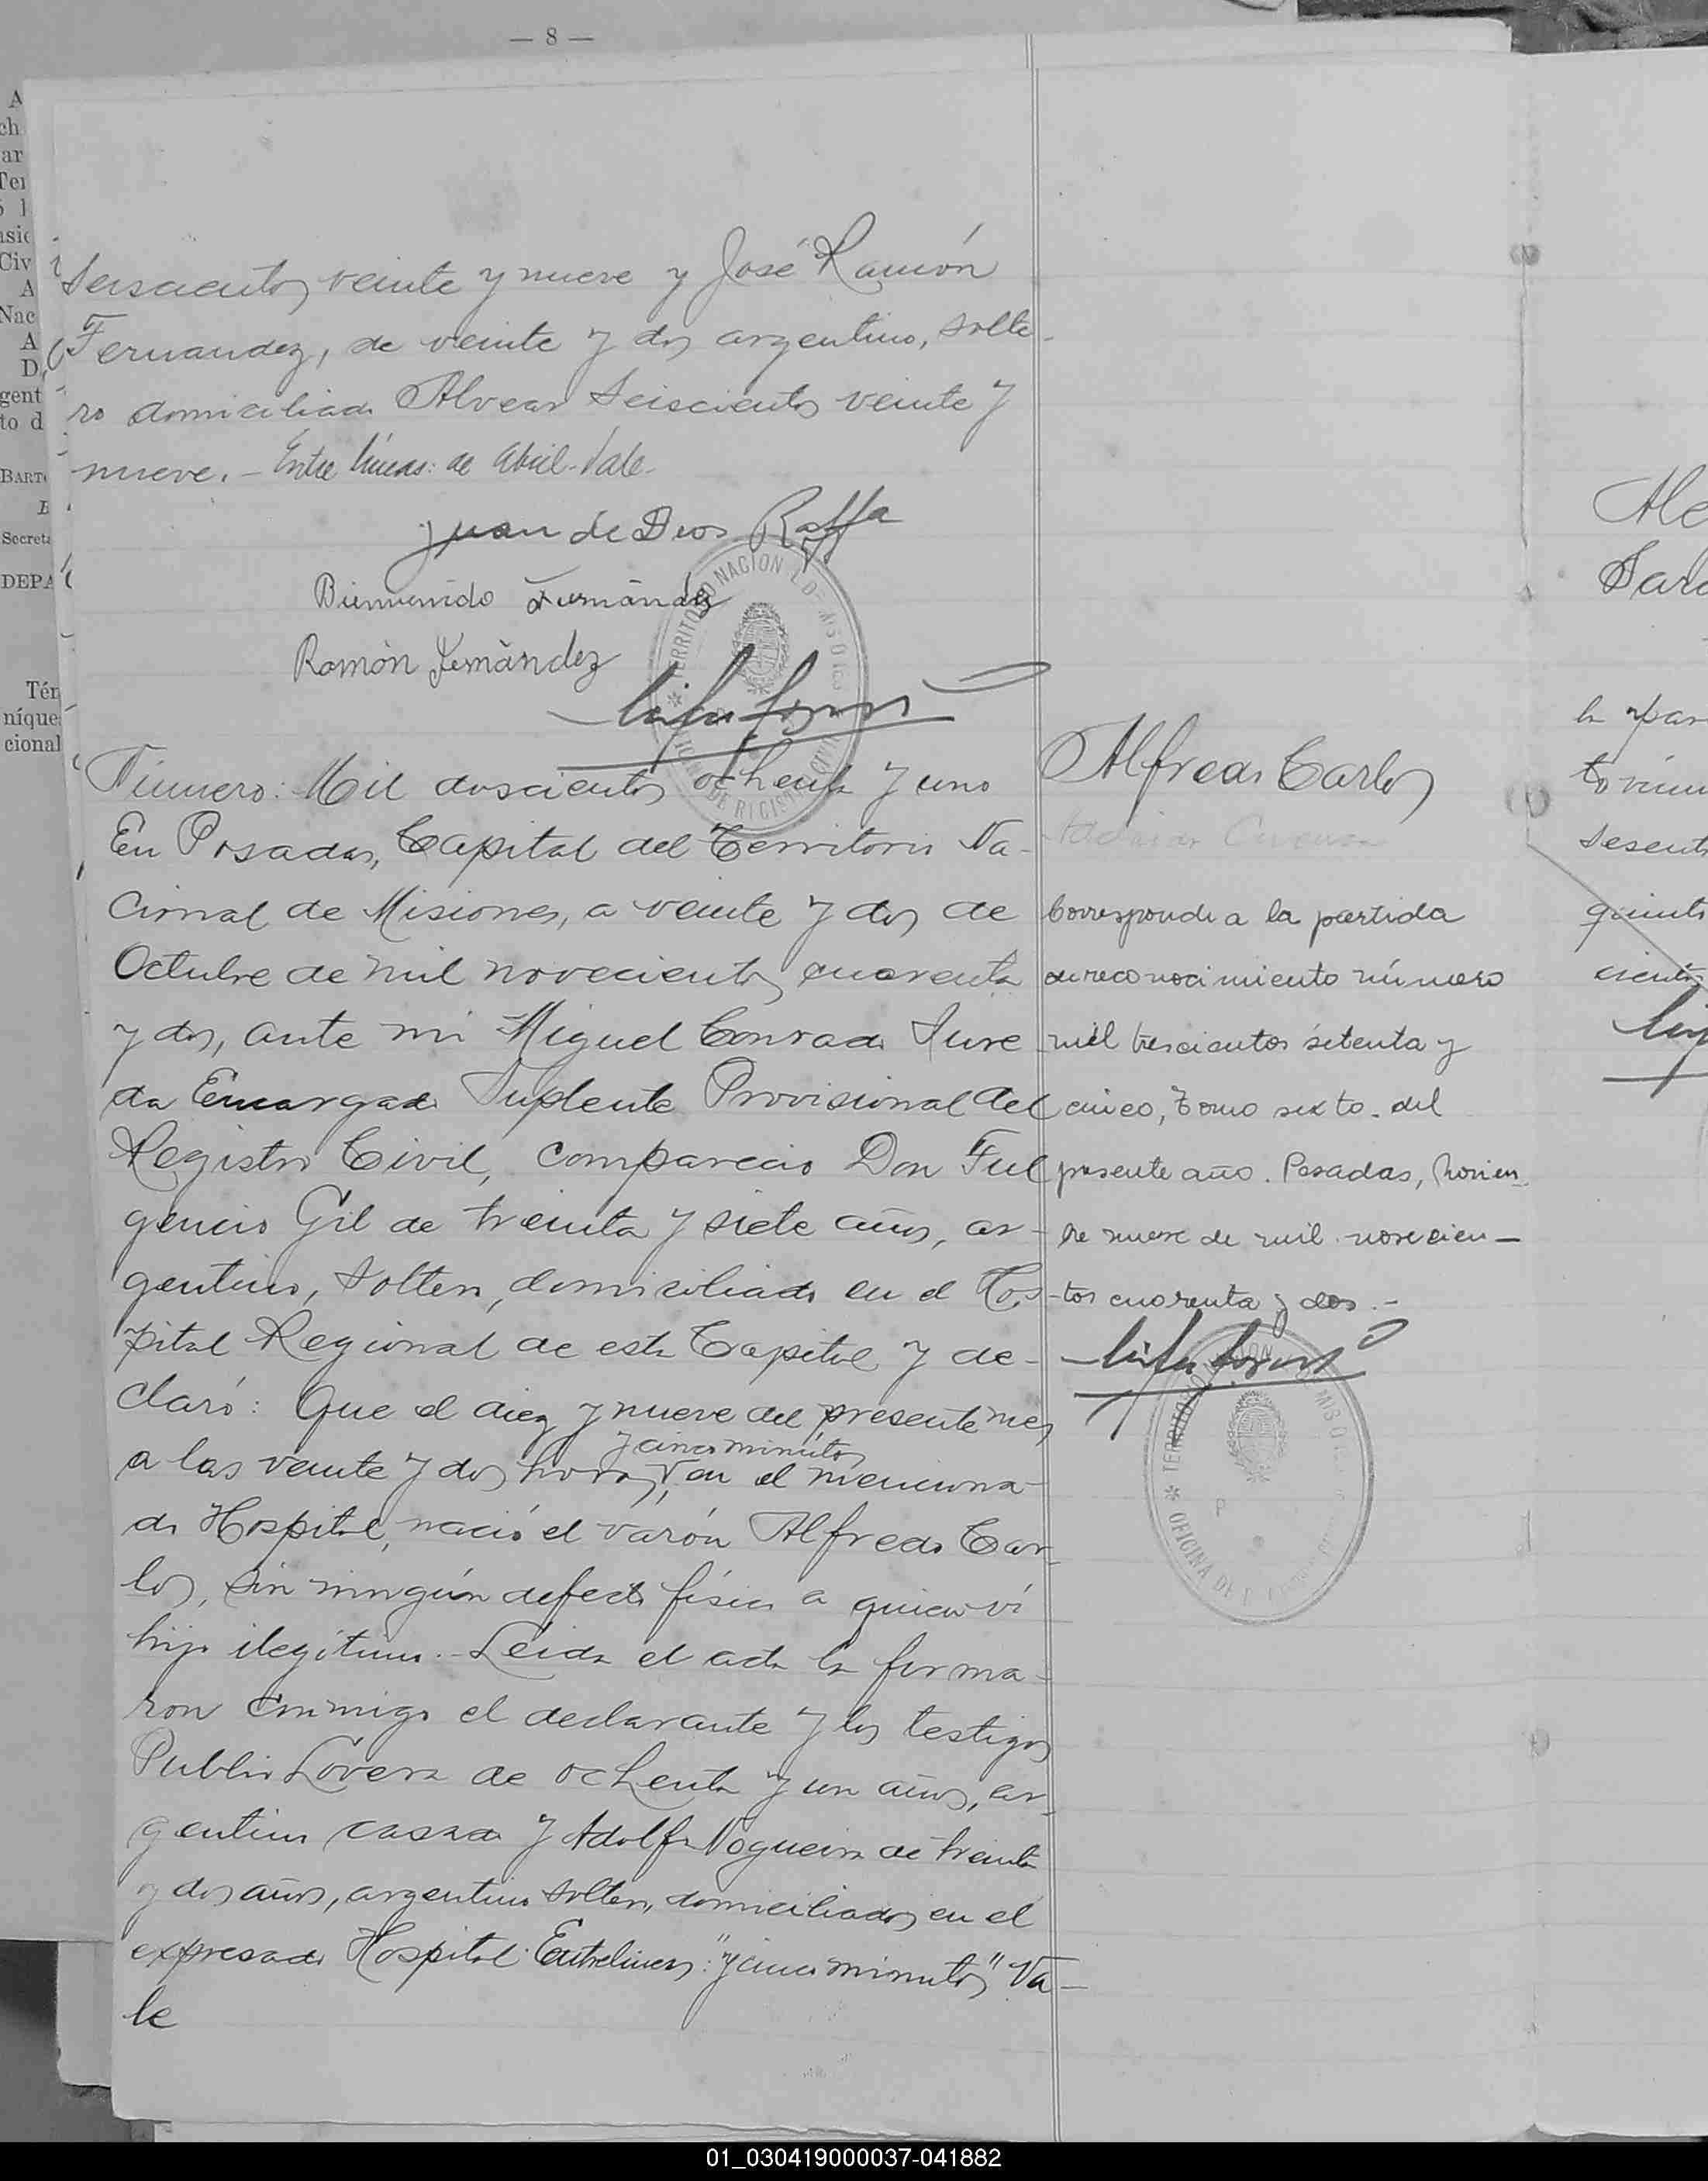 — 8 —
Seiscientos veinte y nueve y José Ramón
Fernandez, de veinte y dos argentino, solte-
ro domiciliado Alvear Seiscientos veinte y
nueve. - Entre líneas: de Abril - Vale -
Juan de Dios Raffa
Bienvenido Fernández
Ramón Fernández
TERRITORIO NACIONAL DE MISIONES
Número: Mil doscientos ochenta y uno
En Posadas, Capital del Territorio Na-
cional de Misiones, a veinte y dos de
Octubre de mil novecientos cuarenta
y dos, ante mi Miguel Conrado Sure
da Encargado Suplente Provisional del
Registro Civil, compareció Don Ful
gencio Gil de treinta y siete años, ar-
gentino, soltero, domiciliado en el Hos-
pital Regional de esta Capital y de-
claró: Que el diez y nueve del presente mes
y cinco minutos
a las veinte y dos horas, en el menciona-
do Hospital, nació el varón Alfredo Car-
los, sin ningún defecto físico a quien vi
hijo ilegítimo. - Leida el acta la firma-
ron conmigo el declarante y los testigos
Publio Lovera de ochenta y un años, ar-
gentino casado y Adolfo Nogueira de treinta
y dos años, argentino soltero, domiciliados en el
expresado Hospital. Entrelíneas: "y cinco minutos" Va-
le
Alfredo Carlos
Corresponde a la partida
de reconocimiento número
mil trescientos setenta y
cinco, tomo sexto del
presente año. Posadas, Noviem-
bre nueve de mil novecien-
tos cuarenta y dos. -
TERRITORIO NACIONAL DE MISIONES
OFICINA DE
01_030419000037-041882